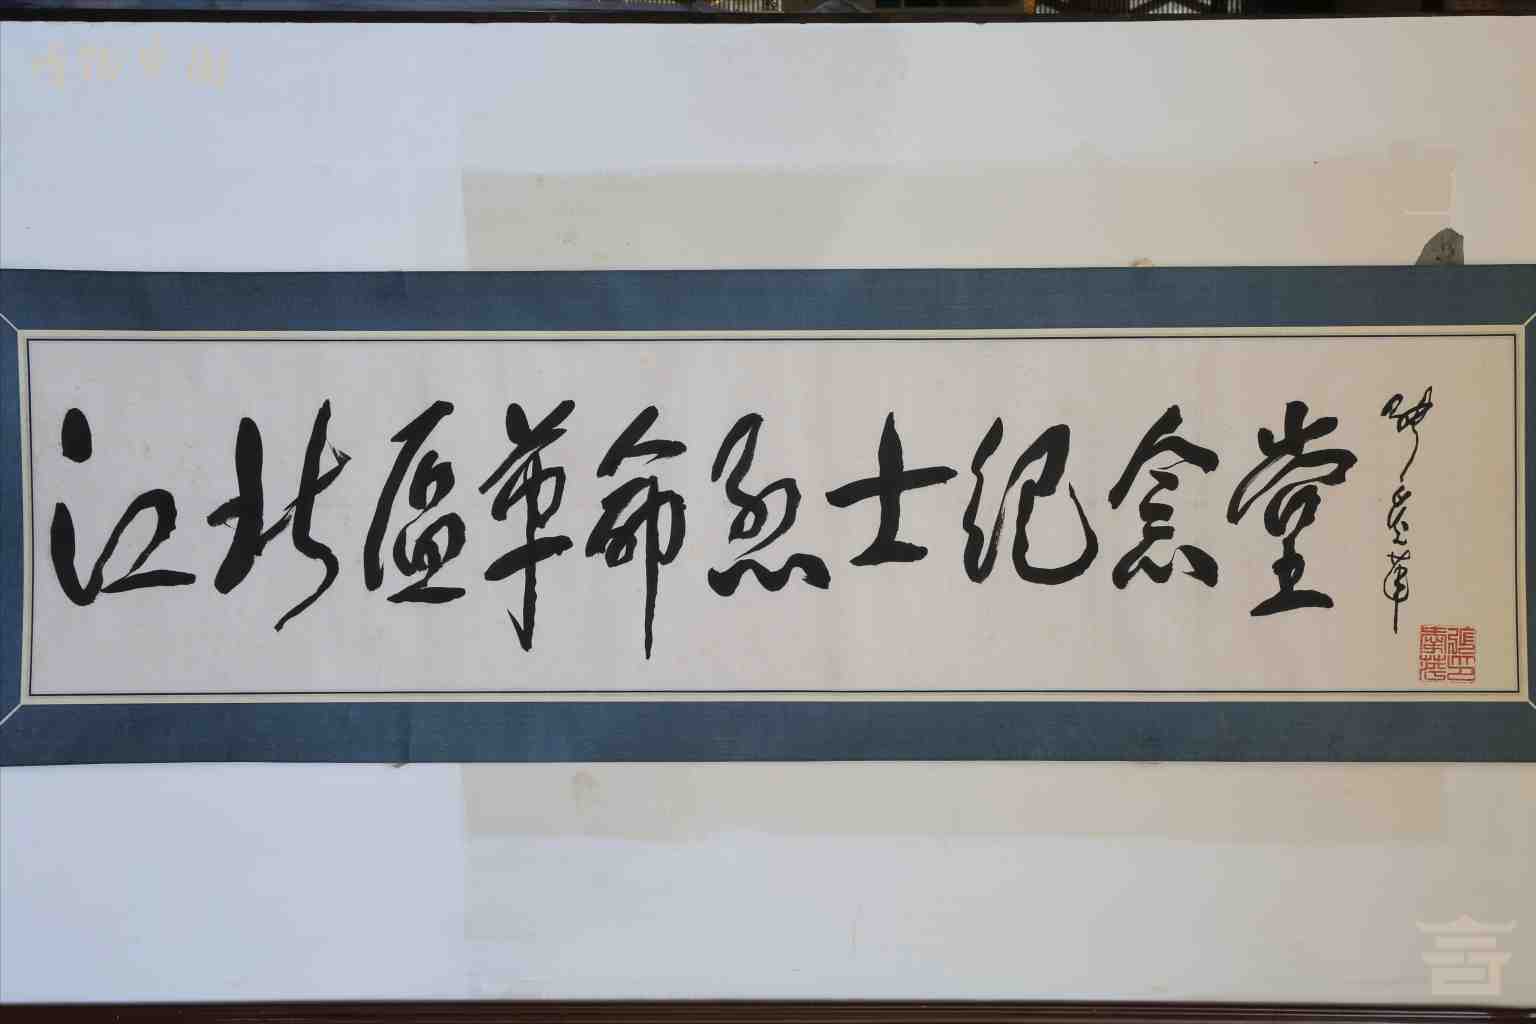 江北区革命烈士纪念堂